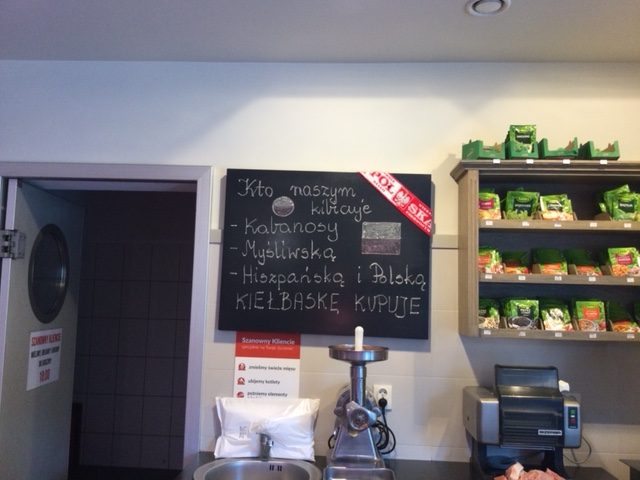 Kto naszym
kibicuje
- Kabanosy
- Myśliwską
- Hiszpańską i Polską
KIEŁBASKĘ KUPUJE
POLSKA
Szanowny Kliencie
zmielimy świeże mięso
ubijemy kotlety
potniemy elementy
SZANOWNI KLIENCI